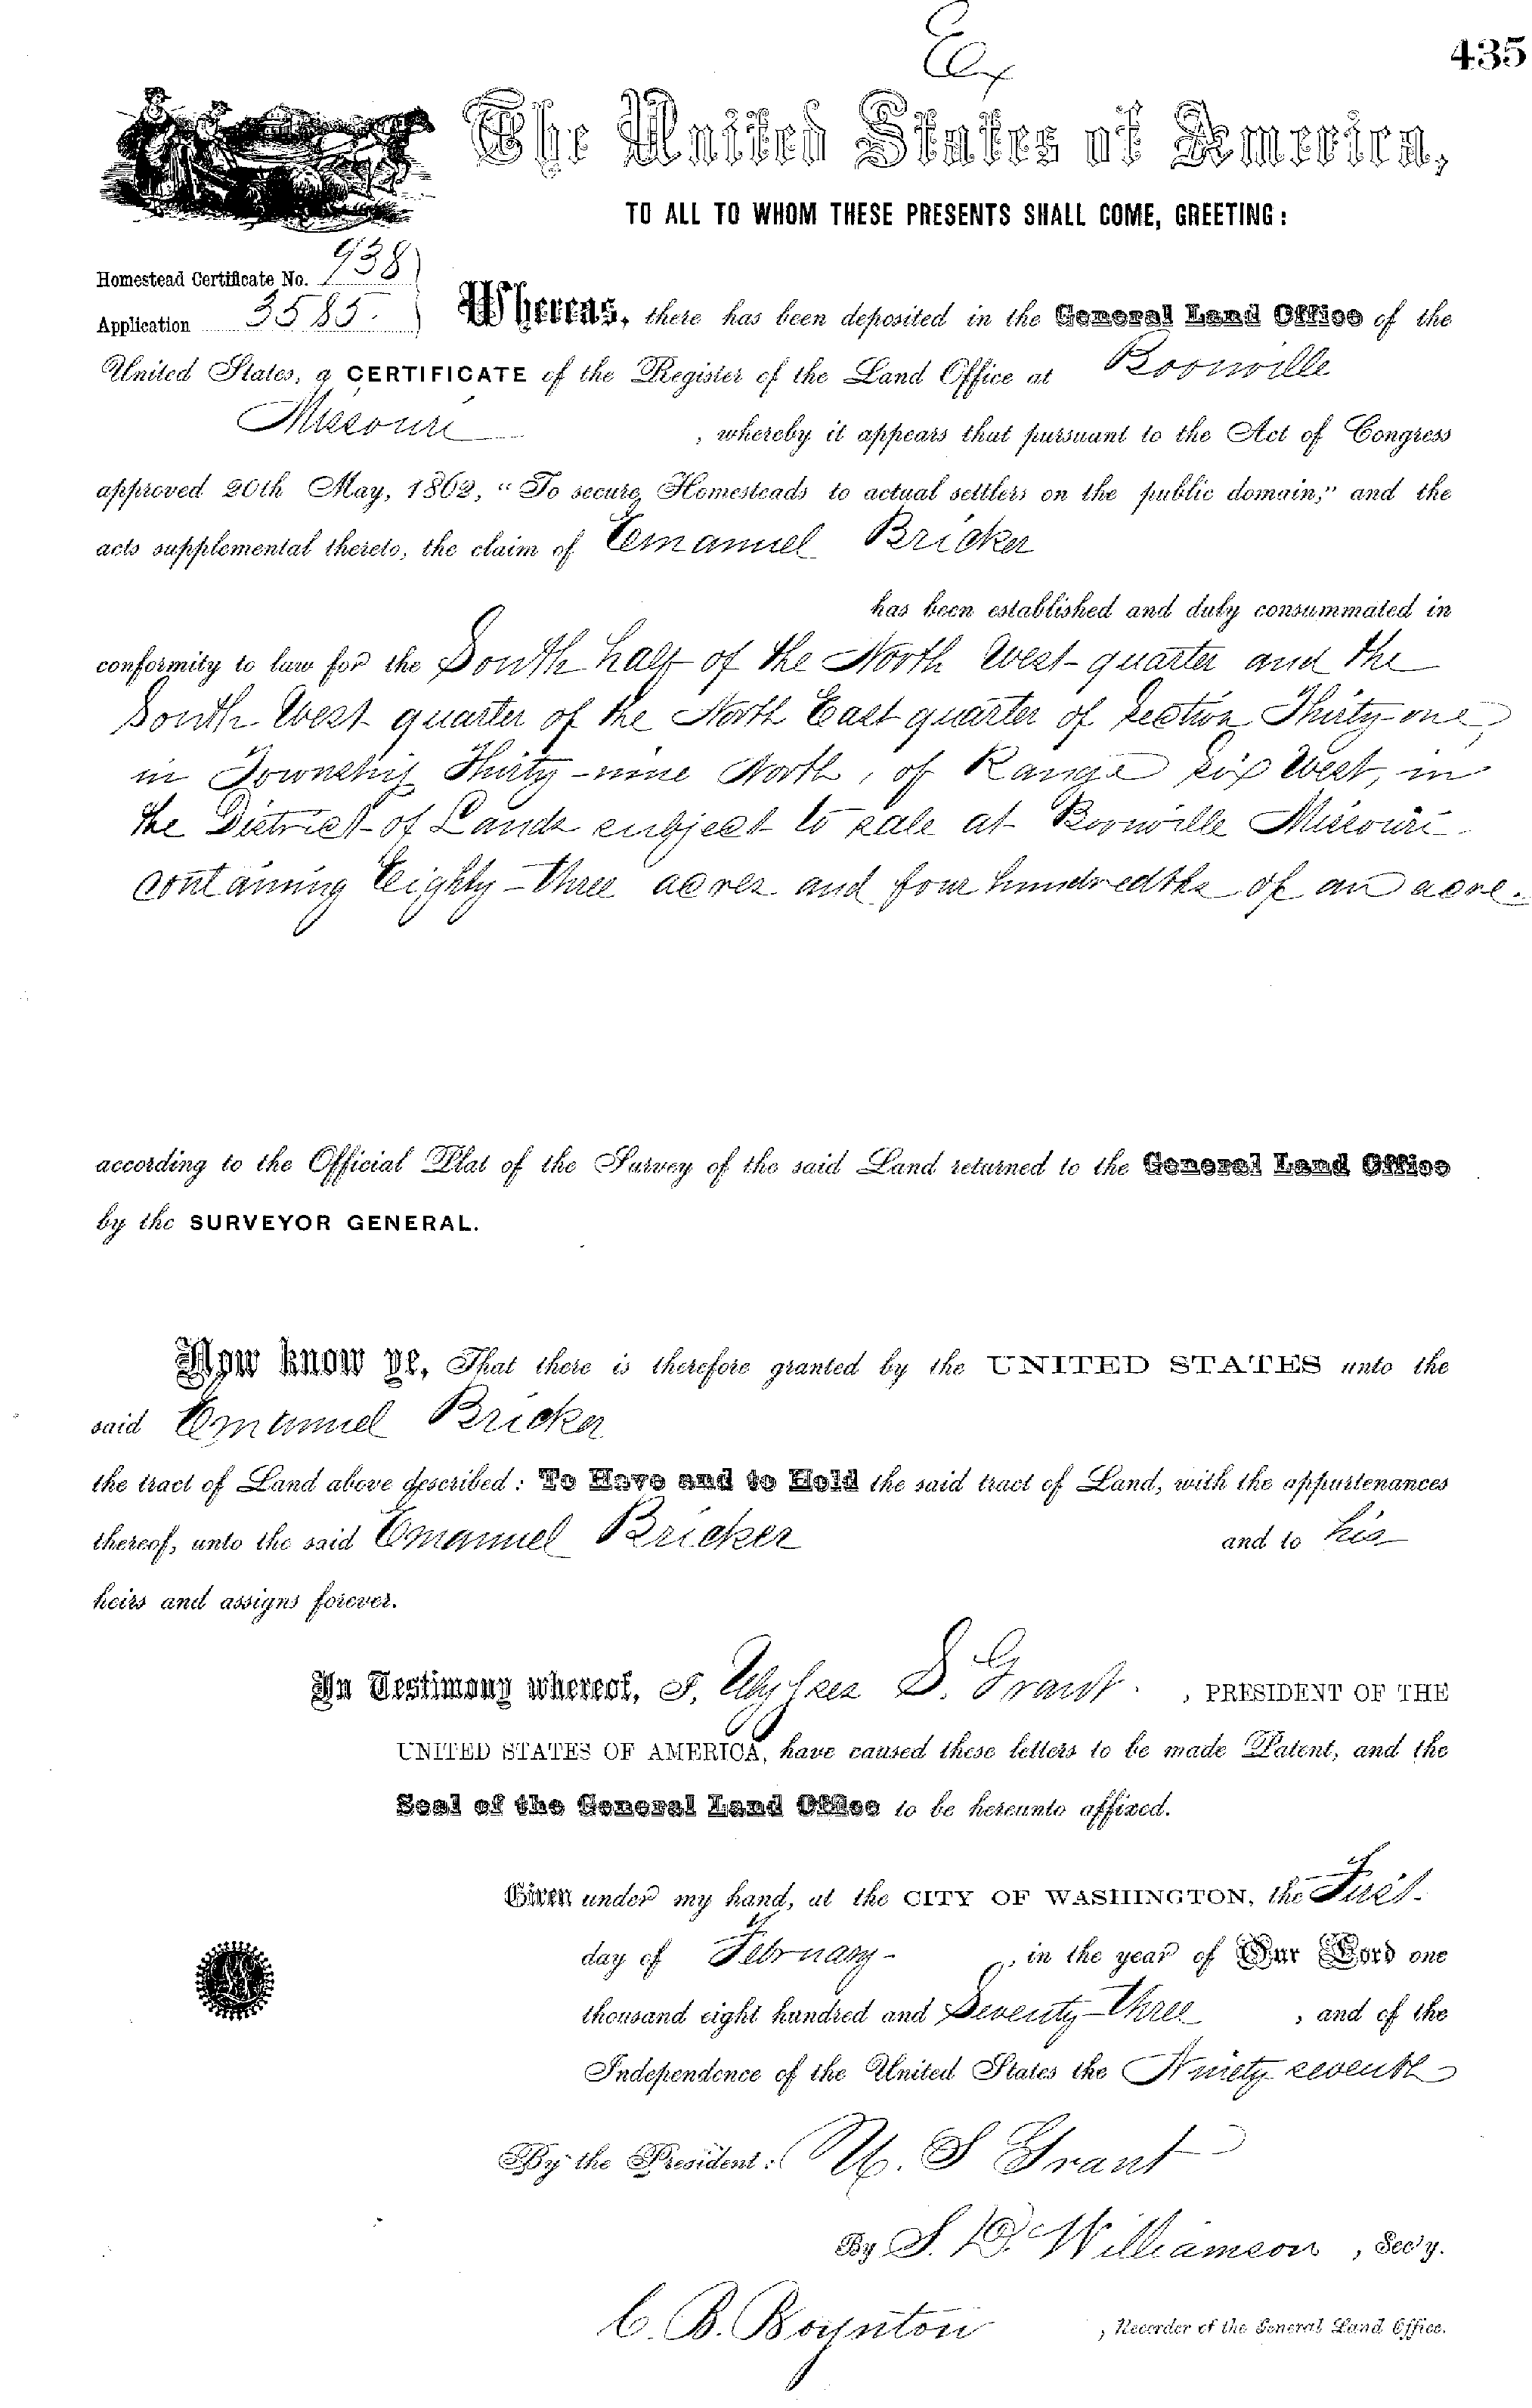 Ex
435
The United States of America,
TO ALL TO WHOM THESE PRESENTS SHALL COME, GREETING:
Homestead Certificate No. 938
Application 3585.
Whereas, there has been deposited in the General Land Office of the
United States, a CERTIFICATE of the Register of the Land Office at Boonville
Missouri, whereby it appears that pursuant to the Act of Congress
approved 20th May, 1862, "To secure Homesteads to actual settlers on the public domain," and the
acts supplemental thereto, the claim of Emanuel Bricker
has been established and duly consummated in
conformity to law for the South half of the North West quarter and the
South West quarter of the North East quarter of Section Thirty-one,
in Township Thirty-nine North, of Range six West, in
the District of Lands subject to sale at Boonville Missouri
containing Eighty-three acres and four hundredths of an acre.
according to the Official Plat of the Survey of the said Land returned to the General Land Office
by the SURVEYOR GENERAL.
Now know ye, That there is therefore granted by the UNITED STATES unto the
said Emanuel Bricker
the tract of Land above described: To Have and to Hold the said tract of Land, with the appurtenances
thereof, unto the said Emanuel Bricker and to his
heirs and assigns forever.
In Testimony whereof, I, Ulysses S. Grant, PRESIDENT OF THE
UNITED STATES OF AMERICA, have caused these letters to be made Patent, and the
Seal of the General Land Office to be hereunto affixed.
Given under my hand, at the CITY OF WASHINGTON, the First
day of February, in the year of Our Lord one
thousand eight hundred and Seventy-three, and of the
Independence of the United States the Ninety seventh
By the President: U. S Grant
By S. D. Williamson, Sec'y.
C. B. Boynton, Recorder of the General Land Office.